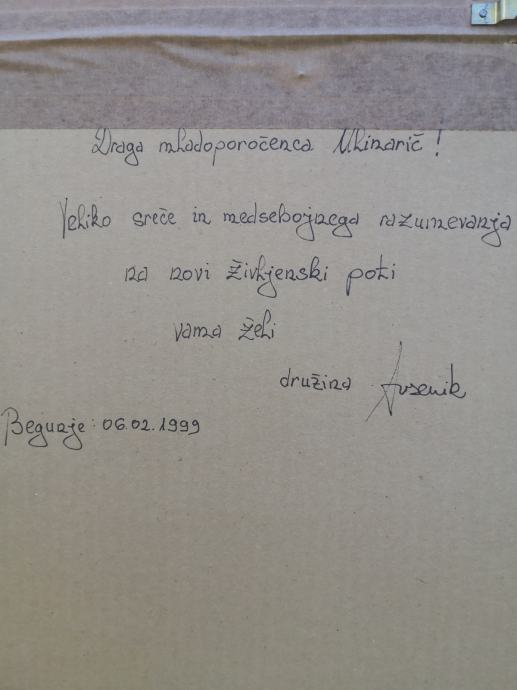 Draga mladoporočenca Mlinarič!
Veliko sreče in medsebojnega razumevanja
na novi življenski poti
vama želi
družina Avsenik
Begunje: 06.02.1999